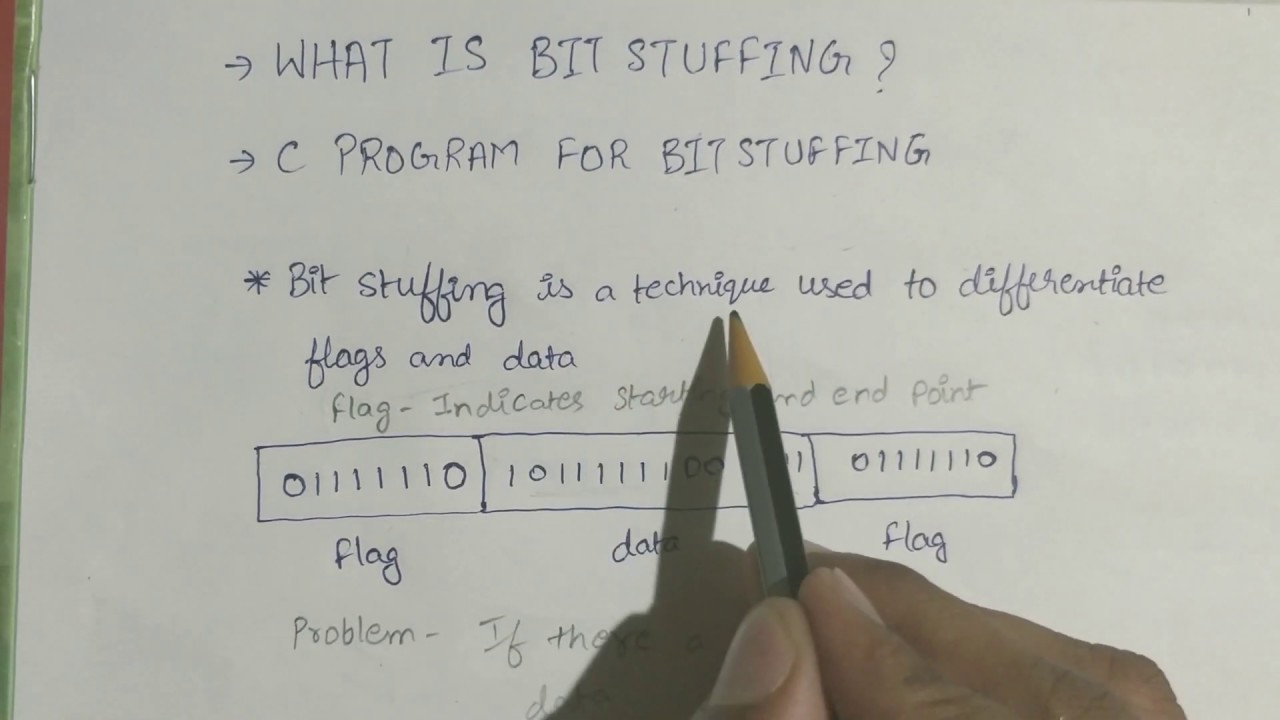 → WHAT IS BIT STUFFING ?
→ C PROGRAM FOR BIT STUFFING
* Bit stuffing is a technique used to differentiate
flags and data
flag - Indicates and end Point
01111110 1011111100 11 01111110
flag data flag
Problem - If there
data